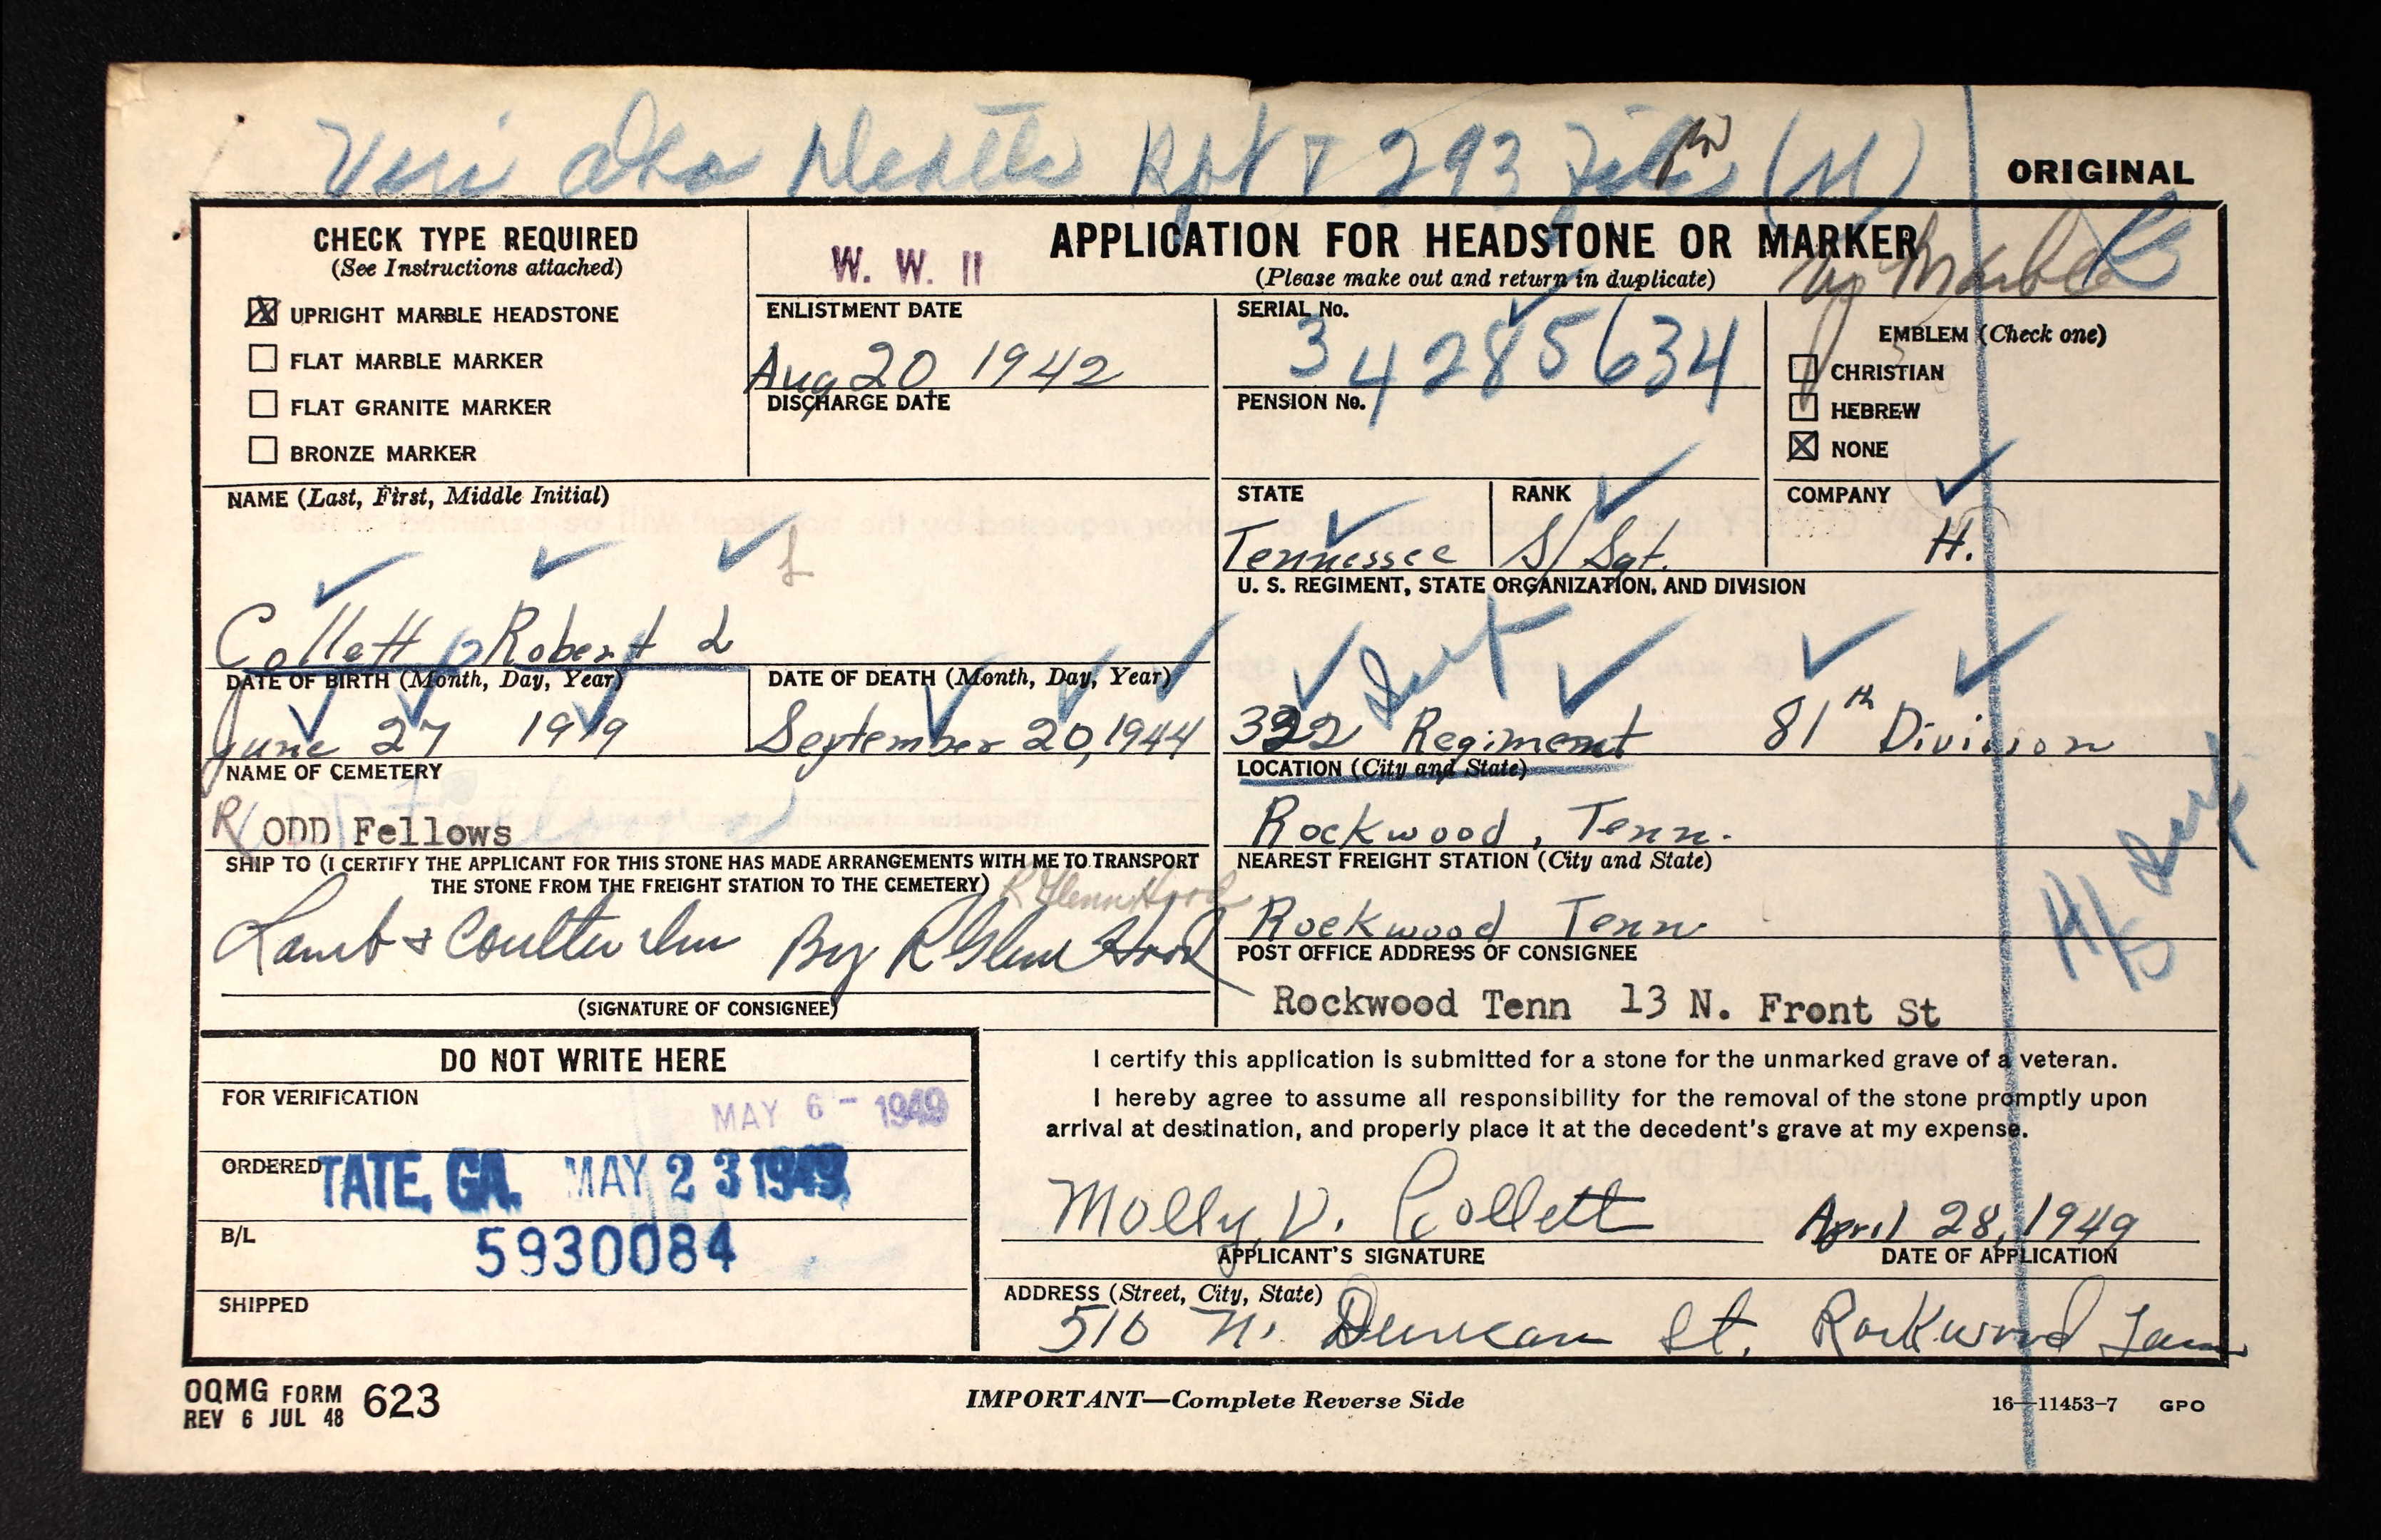 Rpt + 293
ORIGINAL
CHECK TYPE REQUIRED
(See Instructions attached)
UPRIGHT MARBLE HEADSTONE
FLAT MARBLE MARKER
FLAT GRANITE MARKER
BRONZE MARKER
W. W. II
APPLICATION FOR HEADSTONE OR MARKER
(Please make out and return in duplicate)
Up Marble
ENLISTMENT DATE
Aug 20 1942
DISCHARGE DATE
SERIAL No.
34285634
PENSION No.
EMBLEM (Check one)
CHRISTIAN
HEBREW
NONE
NAME (Last, First, Middle Initial)
L
Collett, Robert L
STATE
Tennessee
RANK
S/Sgt.
COMPANY
H.
U. S. REGIMENT, STATE ORGANIZATION, AND DIVISION
Inf
322 Regiment 81th Division
DATE OF BIRTH (Month, Day, Year)
June 27 1919
DATE OF DEATH (Month, Day, Year)
September 20, 1944
NAME OF CEMETERY
R ODD Fellows
LOCATION (City and State)
Rockwood, Tenn.
SHIP TO (I CERTIFY THE APPLICANT FOR THIS STONE HAS MADE ARRANGEMENTS WITH ME TO TRANSPORT
THE STONE FROM THE FREIGHT STATION TO THE CEMETERY)
R Glenn Hood
Lamb & Coulter By R Glenn Hood
(SIGNATURE OF CONSIGNEE)
NEAREST FREIGHT STATION (City and State)
Rockwood Tenn.
POST OFFICE ADDRESS OF CONSIGNEE
Rockwood Tenn 13 N. Front St
DO NOT WRITE HERE
FOR VERIFICATION
MAY 6 - 1949
ORDERED
TATE, GA. MAY 23 1949
B/L
5930084
SHIPPED
I certify this application is submitted for a stone for the unmarked grave of a veteran.
I hereby agree to assume all responsibility for the removal of the stone promptly upon
arrival at destination, and properly place it at the decedent's grave at my expense.
Molly V. Collett
April 28, 1949
APPLICANT'S SIGNATURE
DATE OF APPLICATION
ADDRESS (Street, City, State)
510 N. Duncan St. Rockwood Tenn
OQMG FORM 623
REV 6 JUL 48
IMPORTANT—Complete Reverse Side
16—11453-7 GPO